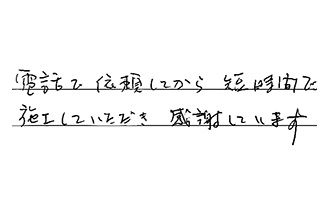 電話で依頼してから短時間で
施工していただき感謝しています